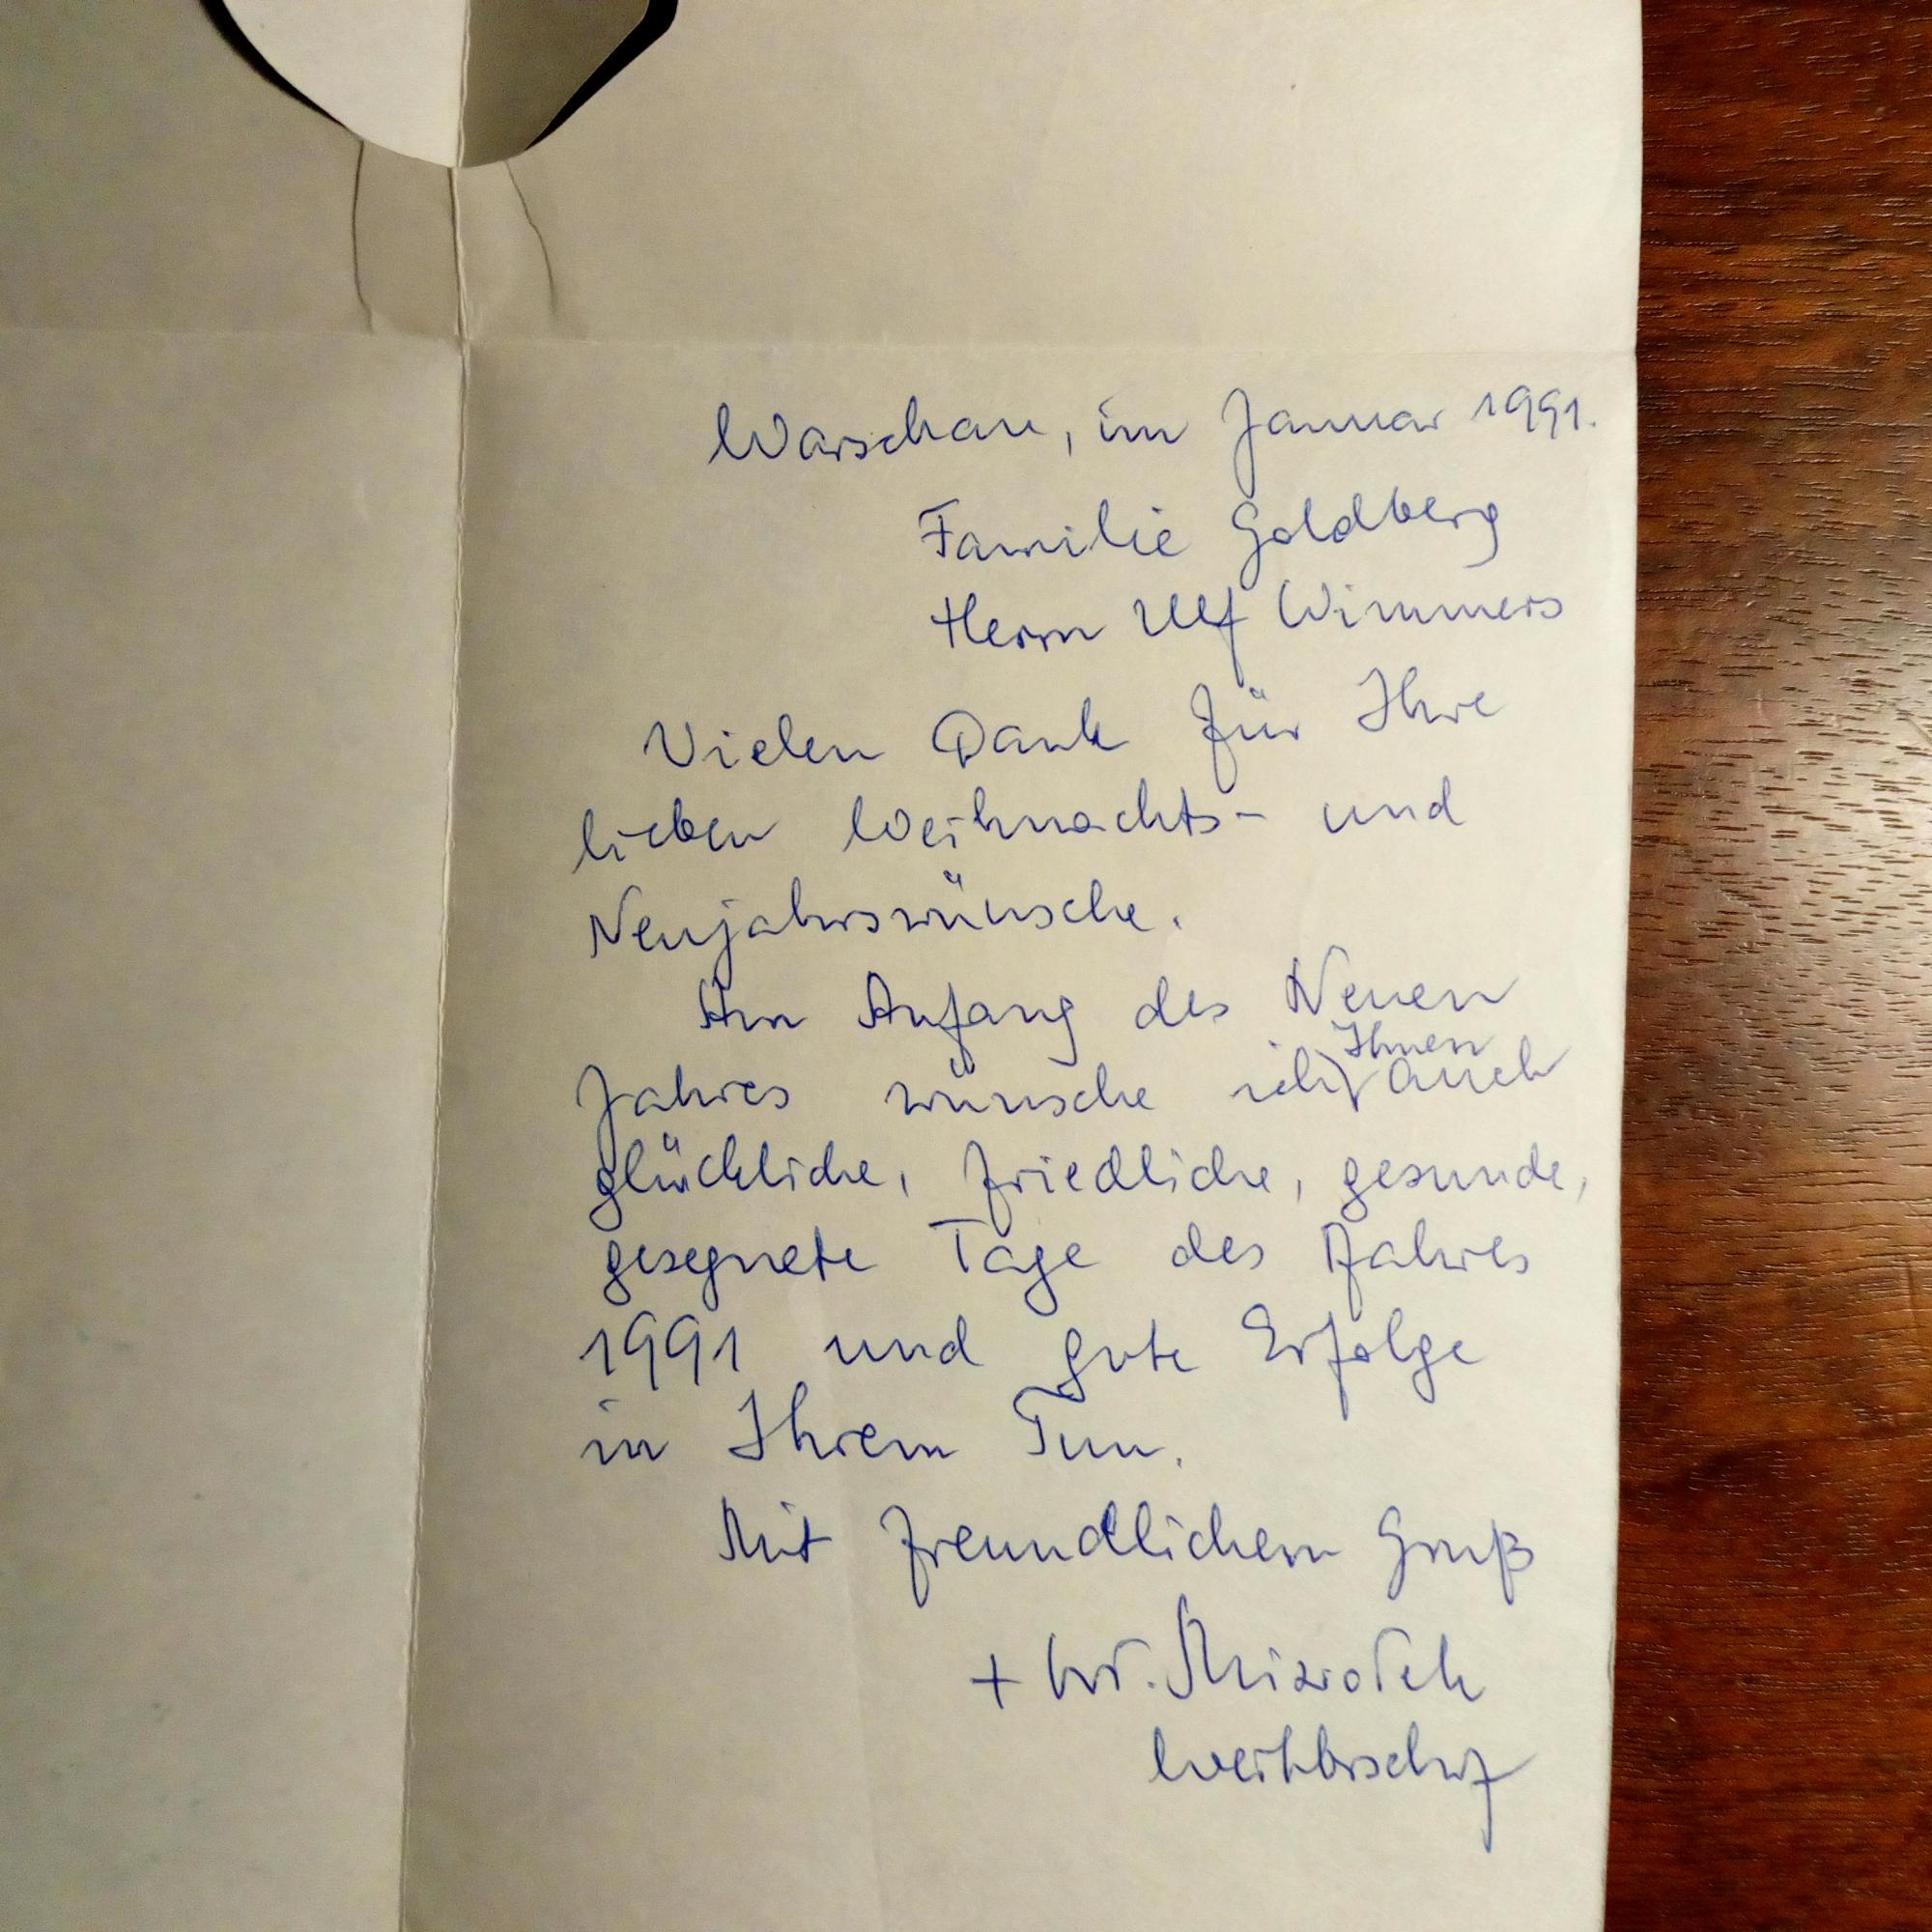 Warschau, im Januar 1991.
Familie Goldberg
Herrn Ulf Wimmers
Vielen Dank für Ihre
lieben Weihnachts- und
Neujahrswünsche.
Am Anfang des Neuen
Jahres wünsche ich Ihnen auch
glückliche, friedliche, gesunde,
gesegnete Tage des Jahres
1991 und gute Erfolge
in Ihrem Tun.
Mit freundlichem Gruß
+ Wł. Miziołek
Weihbischof